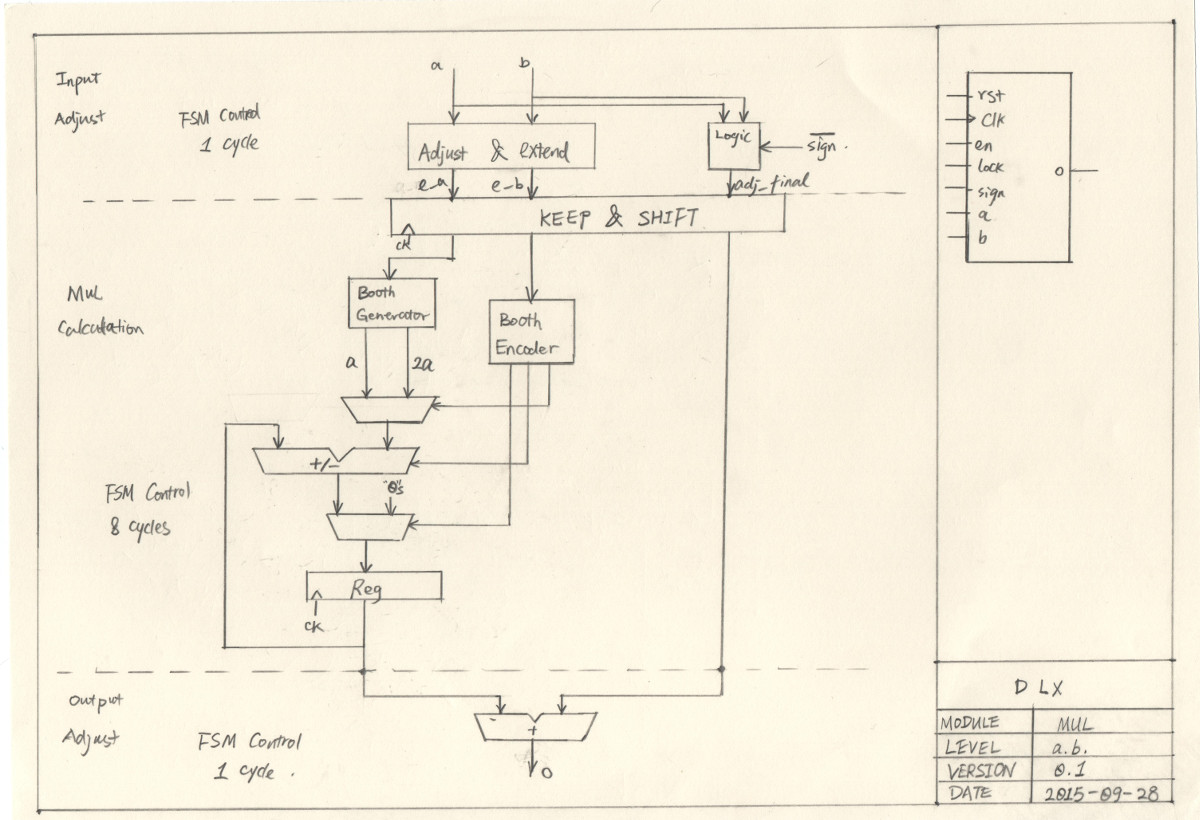 Input
Adjust
FSM Control
1 cycle
a
b
Adjust & extend
Logic
sign.
e_a
e_b
adj_final
KEEP & SHIFT
ck
MUL
Calculation
Booth
Generator
Booth
Encoder
a
2a
+/-
"0"s
FSM Control
8 cycles
Reg
ck
Output
Adjust
FSM Control
1 cycle.
-
+
o
rst
clk
en
lock
sign
a
b
o
DLX
MODULE MUL
LEVEL a.b.
VERSION 0.1
DATE 2015-09-28